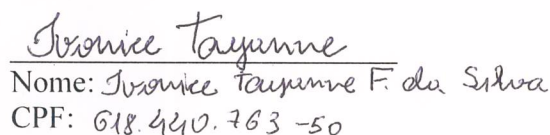 Ivonice Tayanne
Nome: Ivonice Tayanne F. da Silva
CPF: 618.440.763-50